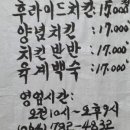 후라이드치킨:15,000
양념치킨:17,000
치킨반반:17,000
육계백숙:17,000
영업시간:
오전10시~오후9시
(064)792-4832